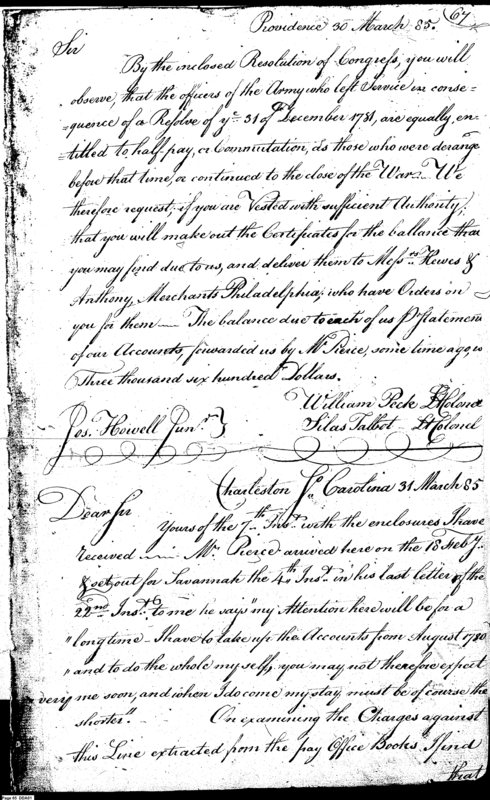 67
Providence 30 March 85.
Sir
By the inclosed Resolution of Congress, you will
observe, that the officers of the Army who left Service in conse=
=quence of a Resolve of ye 31 of December 1781, are equally, en=
=titled to half pay, or Commutation, as those who were derange
before that time, or continued to the close of the War — We
therefore request, if you are Vested with sufficient Authority,
that you will make out the Certificates for the ballance that
you may find due to us, and deliver them to Messrs Hewes &
Anthony, Merchants Philadelphia, who have Orders on
you for them — The balance due to each of us Pr Statement
of our Accounts, forwarded us by Mr Pierce, some time ago, is
Three thousand six hundred Dollars.
William Peck Lt Colonel
Jos. Howell Junr } Silas Talbot Lt Colonel
Charleston So Carolina 31 March 85
Dear Sir
Yours of the 7th Inst with the enclosures I have
received — Mr Pierce arrived here on the 18 Feby
& set out for Savannah the 4th Inst in his last letter of the
22nd Inst to me he says "my Attention here will be for a
"long time — I have to take up the Accounts from August 1780
"and to do the whole my self, you may not therefore expect
very me soon, and when I do come my stay must be of course the
shorter". On examining the Charges against
this Line extracted from the pay Office Books I find
that
Page 65